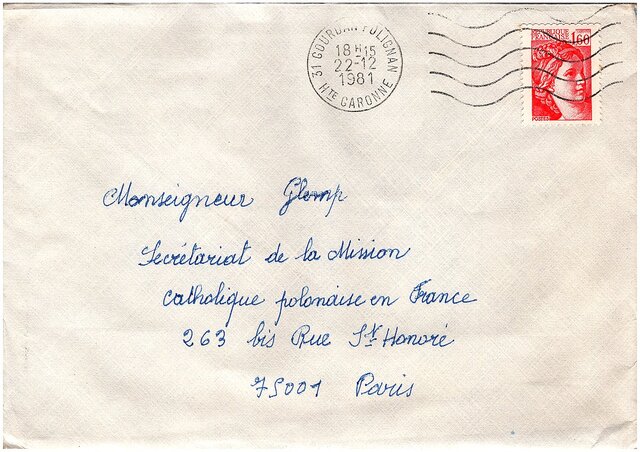 31 GOURDAN POLIGNAN
18 H15
22-12
1981
HTE GARONNE
REPUBLIQUE
FRANCAISE
1.60
POSTES
Monseigneur Glemp
Secrétariat de la Mission
catholique polonaise en France
263 bis Rue St Honoré
75001 Paris